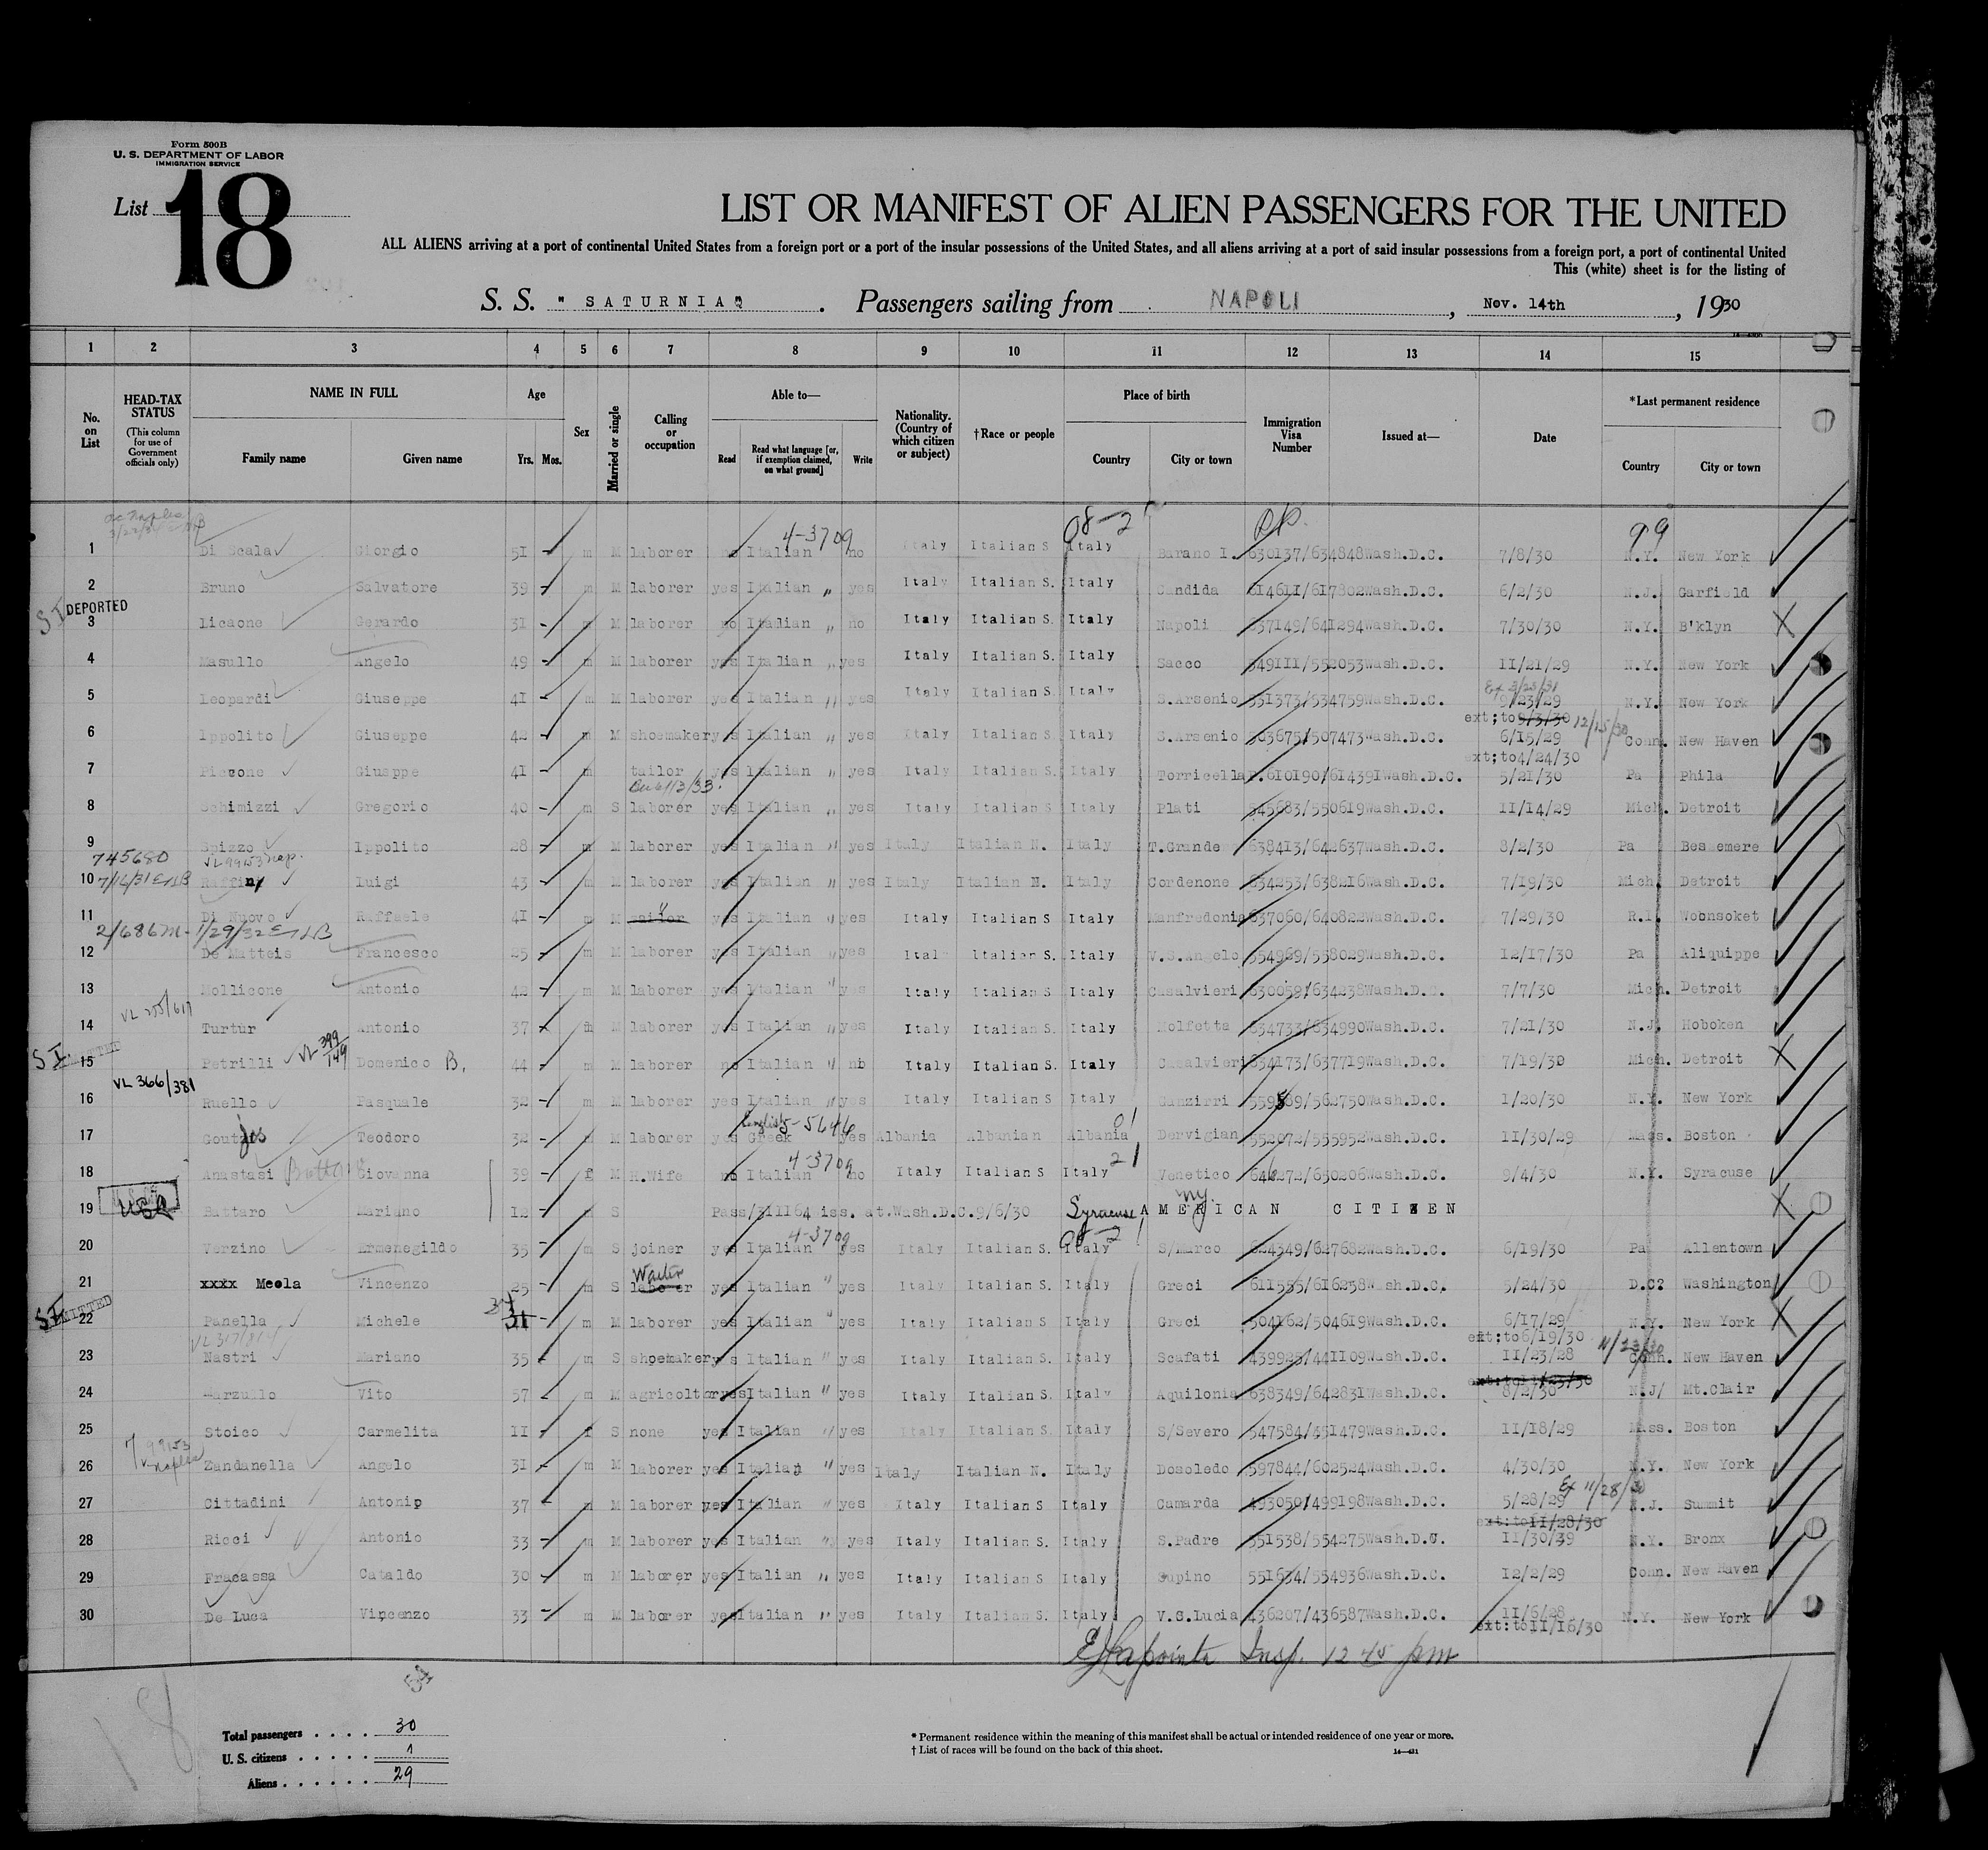 Form 500B
U. S. DEPARTMENT OF LABOR
IMMIGRATION SERVICE
List 18
LIST OR MANIFEST OF ALIEN PASSENGERS FOR THE UNITED
ALL ALIENS arriving at a port of continental United States from a foreign port or a port of the insular possessions of the United States, and all aliens arriving at a port of said insular possessions from a foreign port, a port of continental United
This (white) sheet is for the listing of
S. S. " SATURNIA" . Passengers sailing from NAPOLI , Nov. 14th , 1930
1 2 3 4 5 6 7 8 9 10 11 12 13 14 15
No. on List HEAD-TAX STATUS (This column for use of Government officials only) NAME IN FULL Family name Given name Age Yrs. Mos. Sex Married or single Calling or occupation Able to— Read Read what language [or, if exemption claimed, on what ground] Write Nationality. (Country of which citizen or subject) †Race or people Place of birth Country City or town Immigration Visa Number Issued at— Date *Last permanent residence Country City or town
4-3709 08-2 99
1 Di Scala Giorgio 51 m M laborer no Italian no Italy Italian S Italy Barano I. 630137/634848 Wash.D.C. 7/8/30 N.Y. New York
2 Bruno Salvatore 39 m M laborer yes Italian " yes Italy Italian S. Italy Candida 614611/617802 Wash.D.C. 6/2/30 N.J. Garfield
SI DEPORTED
3 Licaone Gerardo 31 m M laborer no Italian " no Italy Italian S. Italy Napoli 637149/641294 Wash.D.C. 7/30/30 N.Y. B'klyn X
4 Masullo Angelo 49 m M laborer yes Italian " yes Italy Italian S. Italy Sacco 549111/552053 Wash.D.C. 11/21/29 N.Y. New York
5 Leopardi Giuseppe 41 m M laborer yes Italian " yes Italy Italian S. Italy S.Arsenio 551373/534759 Wash.D.C. 9/23/29 N.Y. New York
ext;to 9/3/30 12/15/30
6 Ippolito Giuseppe 42 m M shoemaker yes Italian " yes Italy Italian S. Italy S.Arsenio 503675/507473 Wash.D.C. 6/15/29 Conn. New Haven
ext;to4/24/30
7 Piccone Giuseppe 41 m tailor yes Italian " yes Italy Italian S. Italy Torricella P. 610190/614391 Wash.D.C. 5/21/30 Pa Phila
8 Schimizzi Gregorio 40 m S laborer yes Italian " yes Italy Italian S Italy Plati 545683/550619 Wash.D.C. 11/14/29 Mich. Detroit
9 Spizzo Ippolito 28 m M laborer yes Italian " yes Italy Italian N. Italy T.Grande 638413/642637 Wash.D.C. 8/2/30 Pa Bessemere
745680 VL 99153 nap.
10 7/16/31 Raffiny Luigi 43 m M laborer yes Italian " yes Italy Italian N. Italy Cordenone 634253/638216 Wash.D.C. 7/19/30 Mich. Detroit
11 Di Nuovo Raffaele 41 m M yes Italian " yes Italy Italian S Italy Manfredonia 637060/640822 Wash.D.C. 7/29/30 R.I. Woonsoket
2/686M- 1/29/32
12 De Matteis Francesco 25 m M laborer yes Italian " yes Italy Italian S. Italy V.S.Angelo 554969/558029 Wash.D.C. 12/17/30 Pa Aliquippe
13 Mollicone Antonio 42 m M laborer yes Italian " yes Italy Italian S Italy Casalvieri 630059/634238 Wash.D.C. 7/7/30 Mich. Detroit
14 Turtur Antonio 37 m M laborer yes Italian " yes Italy Italian S. Italy Molfetta 634733/634990 Wash.D.C. 7/21/30 N.J. Hoboken
SI VL 399/149
15 Petrilli Domenico B. 44 m M laborer no Italian " no Italy Italian S. Italy Casalvieri 634173/637719 Wash.D.C. 7/19/30 Mich. Detroit X
VL 366/381
16 Ruello Pasquale 32 m M laborer yes Italian " yes Italy Italian S Italy Ganzirri 559569/562750 Wash.D.C. 1/20/30 N.Y. New York
English 5-5646
17 Teodoro 32 M laborer yes Greek yes Albania Albanian Albania Dervigian 552072/555952 Wash.D.C. 11/30/29 Mass. Boston
4-3709 21
18 Anastasi Giovanna 39 f M H.Wife no Italian no Italy Italian S Italy Venetico 646272/650206 Wash.D.C. 9/4/30 N.Y. Syracuse
19 USA Battaro Mariano 12 m S Pass/311164 iss. at.Wash.D.C. 9/6/30 Syracuse, N.Y. AMERICAN CITIZEN X
4-3709
20 Verzino Ermenegildo 35 m S joiner yes Italian yes Italy Italian S. Italy S/Marco 624349/627682 Wash.D.C. 6/19/30 Pa Allentown
Waiter
21 xxxx Meola Vincenzo 25 m S laborer yes Italian " yes Italy Italian S. Italy Greci 611555/616258 Wash.D.C. 5/24/30 D.C? Washington
SI 37
22 Panella Michele 31 m M laborer yes Italian " yes Italy Italian S Italy Greci 504162/504619 Wash.D.C. 6/17/29 N.Y. New York X
ext:to6/19/30
23 Nastri Mariano 35 m S shoemaker yes Italian " yes Italy Italian S. Italy Scafati 439925/441109 Wash.D.C. 11/23/28 Conn. New Haven
ext:to11/23/30
24 Marzullo Vito 57 m M agricoltor yes Italian " yes Italy Italian S. Italy Aquilonia 638349/642831 Wash.D.C. 8/2/30 N.J/ Mt.Clair
25 Stoico Carmelita 11 f S none yes Italian " yes Italy Italian S. Italy S/Severo 547584/451479 Wash.D.C. 11/18/29 Mass. Boston
26 Zandanella Angelo 31 m M laborer yes Italian " yes Italy Italian N. Italy Dosoledo 597844/602524 Wash.D.C. 4/30/30 N.Y. New York
Ex 11/28/30
27 Cittadini Antonio 37 m M laborer yes Italian " yes Italy Italian S Italy Camarda 493050/499198 Wash.D.C. 5/28/29 N.J. Summit
ext:to11/28/30
28 Ricci Antonio 33 m M laborer yes Italian " yes Italy Italian S. Italy S.Padre 551538/554275 Wash.D.C. 11/30/29 N.Y. Bronx
29 Fracassa Cataldo 30 m M laborer yes Italian " yes Italy Italian S Italy Supino 551634/554936 Wash.D.C. 12/2/29 Conn. New Haven
30 De Luca Vincenzo 33 m M laborer yes Italian " yes Italy Italian S. Italy V.S.Lucia 436207/436587 Wash.D.C. 11/6/28 N.Y. New York
ext:to11/16/30
E Lapointe Insp. 12 45 pm
18
Total passengers . . . . 30
U. S. citizens . . . . . 1
Aliens . . . . . . 29
* Permanent residence within the meaning of this manifest shall be actual or intended residence of one year or more.
† List of races will be found on the back of this sheet.